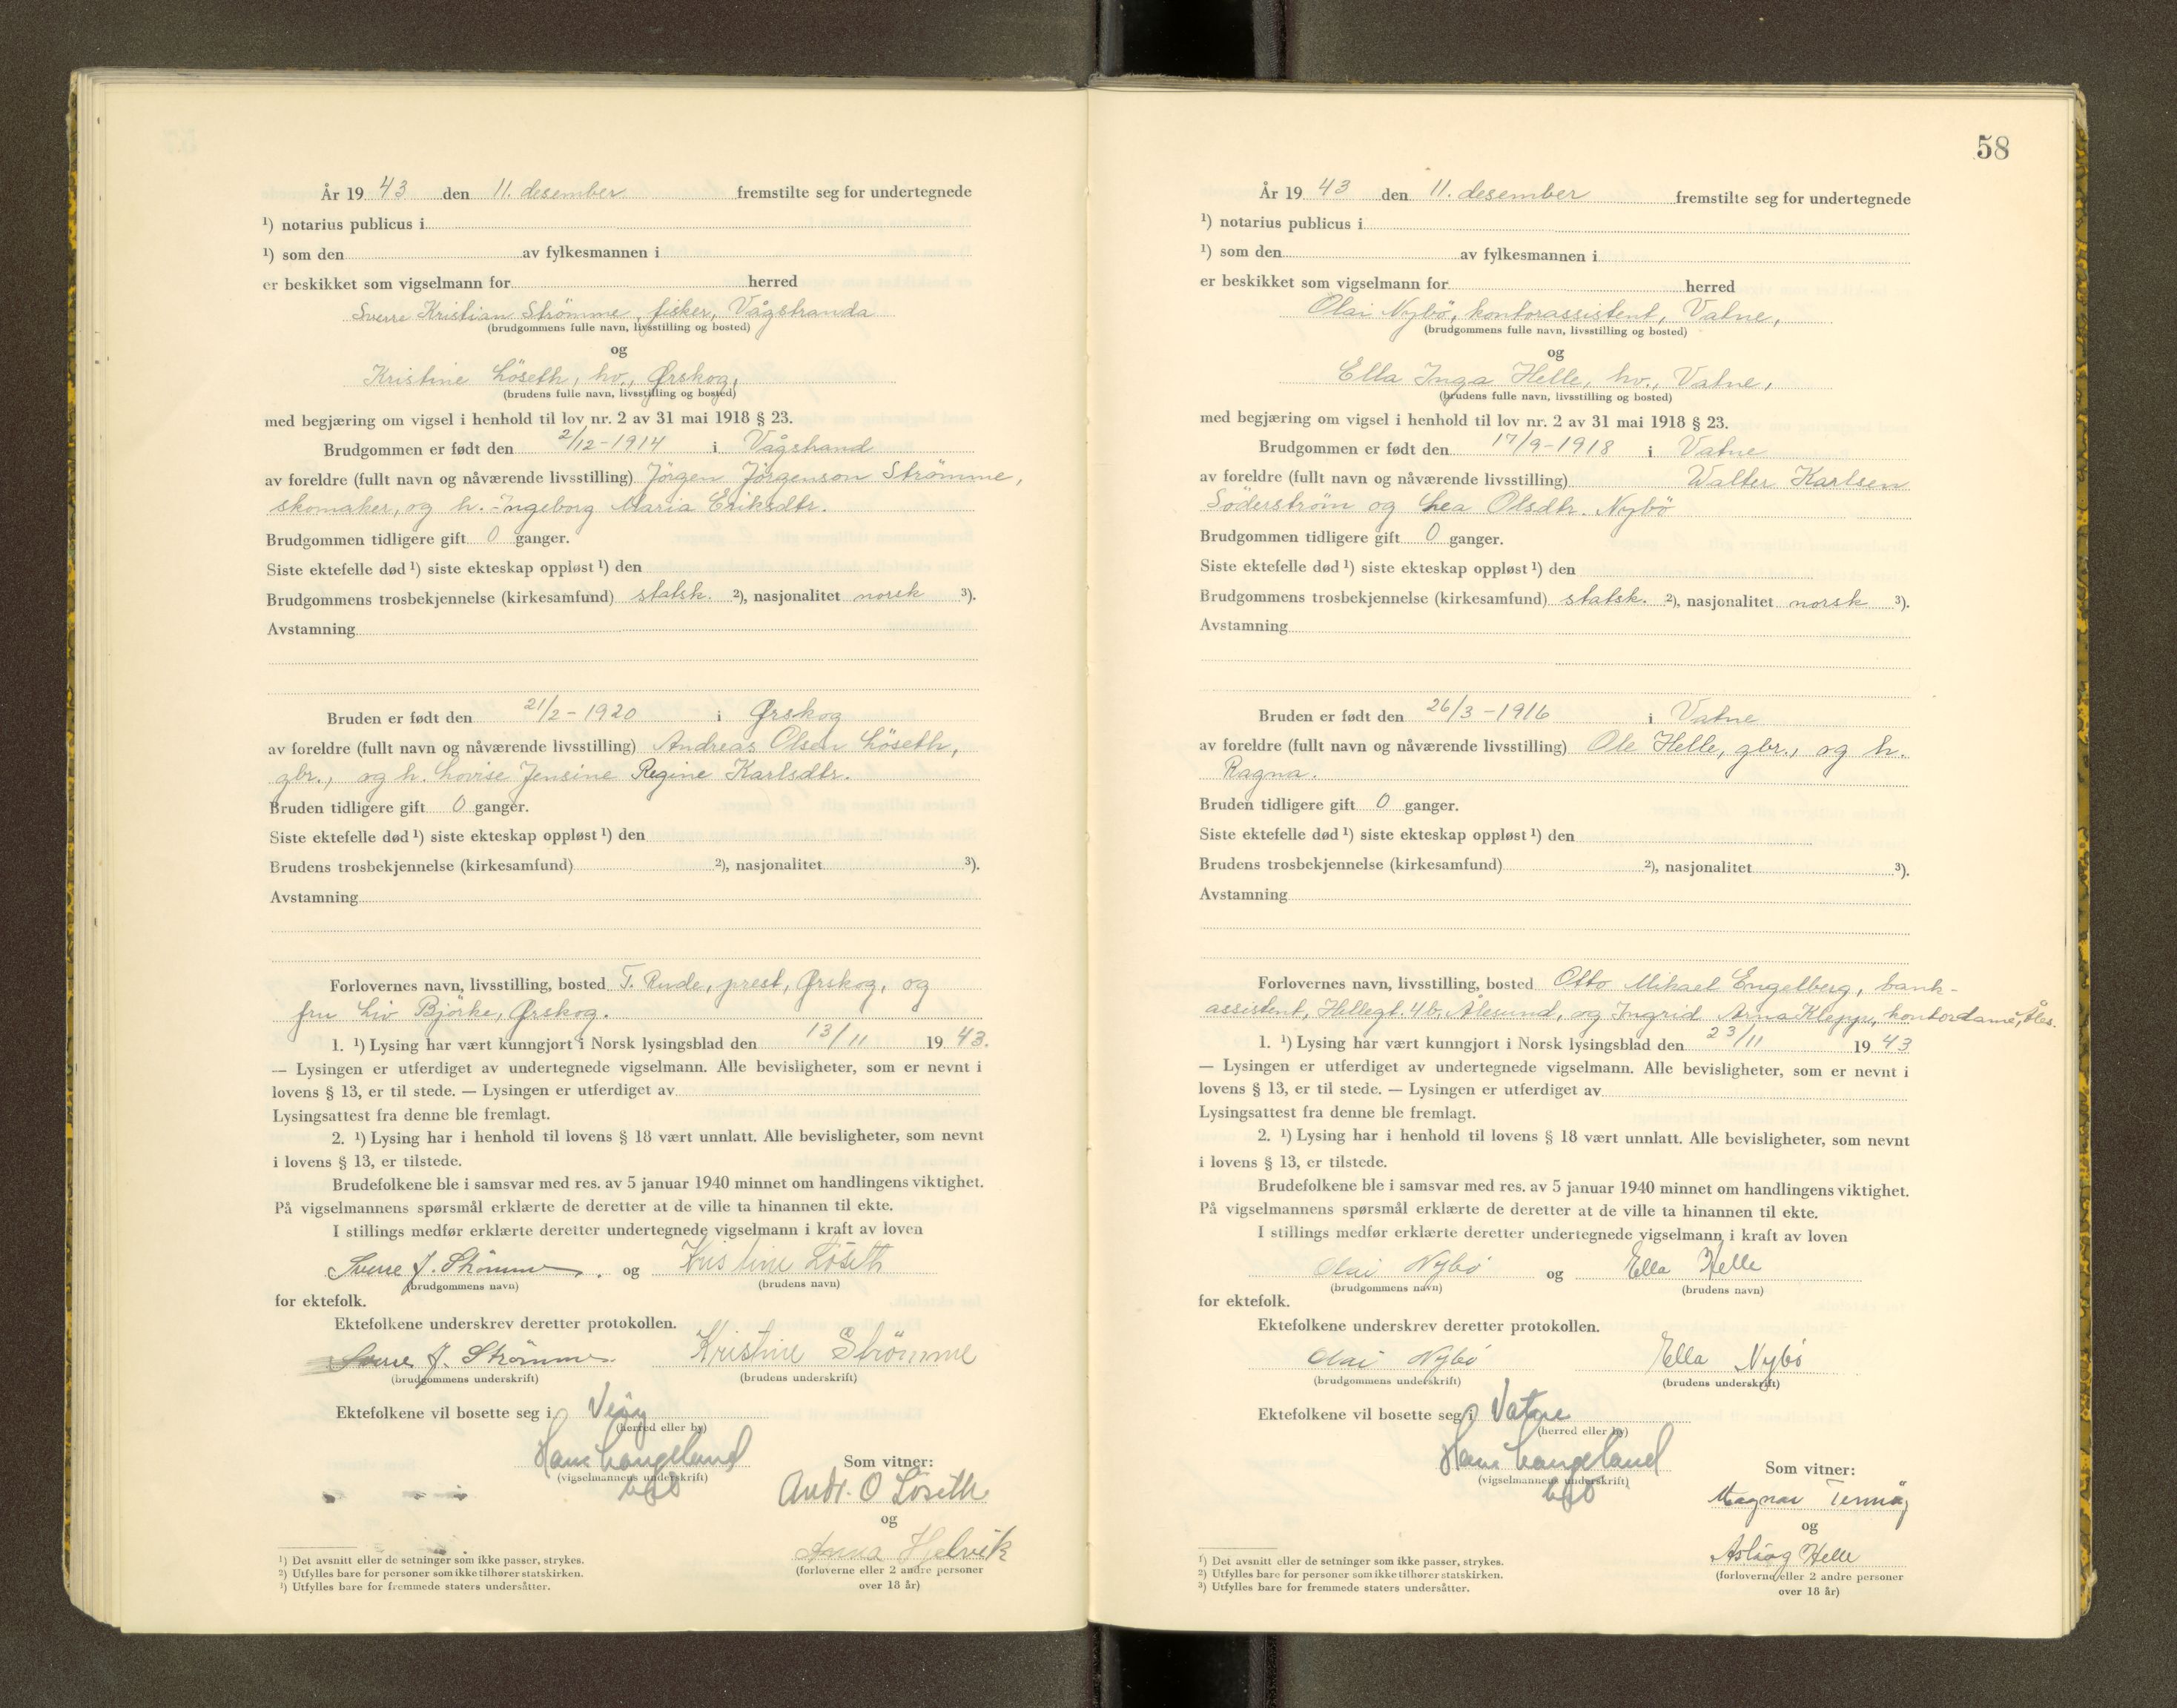 År 19 43 den 11. desember fremstilte seg for undertegnede
¹) notarius publicus i
¹) som den av fylkesmannen i
er beskikket som vigselmann for herred
Sverre Kristian Strömme, fisker, Vågstranda
(brudgommens fulle navn, livsstilling og bosted)
og
Kristine Löseth, hv., Ørskog,
(brudens fulle navn, livsstilling og bosted)
med begjæring om vigsel i henhold til lov nr. 2 av 31 mai 1918 § 23.
Brudgommen er født den 2/12-1914 i Vågstrand
av foreldre (fullt navn og nåværende livsstilling) Jörgen Jörgenson Strömme,
skomaker, og h. Ingeborg Maria Eriksdtr.
Brudgommen tidligere gift 0 ganger.
Siste ektefelle død ¹) siste ekteskap oppløst ¹) den
Brudgommens trosbekjennelse (kirkesamfund) statsk. ²), nasjonalitet norsk ³).
Avstamning
Bruden er født den 21/2-1920 i Ørskog
av foreldre (fullt navn og nåværende livsstilling) Andreas Olsen Löseth,
gbr., og h. Lovise Jensine Regine Karlsdtr.
Bruden tidligere gift 0 ganger.
Siste ektefelle død ¹) siste ekteskap oppløst ¹) den
Brudens trosbekjennelse (kirkesamfund) ²), nasjonalitet ³).
Avstamning
Forlovernes navn, livsstilling, bosted T. Rude, prest, Ørskog, og
fru Liv Björke, Ørskog.
1. ¹) Lysing har vært kunngjort i Norsk lysingsblad den 13/11 19 43.
— Lysingen er utferdiget av undertegnede vigselmann. Alle bevisligheter, som er nevnt i
lovens § 13, er til stede. — Lysingen er utferdiget av
Lysingsattest fra denne ble fremlagt.
2. ¹) Lysing har i henhold til lovens § 18 vært unnlatt. Alle bevisligheter, som nevnt
i lovens § 13, er tilstede.
Brudefolkene ble i samsvar med res. av 5 januar 1940 minnet om handlingens viktighet.
På vigselmannens spørsmål erklærte de deretter at de ville ta hinannen til ekte.
I stillings medfør erklærte deretter undertegnede vigselmann i kraft av loven
Sverre J. Strömme. og Kristine Löseth
(brudgommens navn) (brudens navn)
for ektefolk.
Ektefolkene underskrev deretter protokollen.
Sverre J. Strömme. Kristine Strömme
(brudgommens underskrift) (brudens underskrift)
Ektefolkene vil bosette seg i Vöy
(herred eller by)
Hans Langeland
(vigselmannens underskrift)
Som vitner:
Andr. O Löseth
og
Anna Hjelvik
(forloverne eller 2 andre personer
over 18 år)
¹) Det avsnitt eller de setninger som ikke passer, strykes.
²) Utfylles bare for personer som ikke tilhører statskirken.
³) Utfylles bare for fremmede staters undersåtter.
58
År 19 43 den 11. desember fremstilte seg for undertegnede
¹) notarius publicus i
¹) som den av fylkesmannen i
er beskikket som vigselmann for herred
Olai Nybö, kontorassistent, Vatne,
(brudgommens fulle navn, livsstilling og bosted)
og
Ella Inga Helle, hv., Vatne,
(brudens fulle navn, livsstilling og bosted)
med begjæring om vigsel i henhold til lov nr. 2 av 31 mai 1918 § 23.
Brudgommen er født den 17/9-1918 i Vatne
av foreldre (fullt navn og nåværende livsstilling) Walter Karlsen
Söderström og Lea Olsdtr. Nybö
Brudgommen tidligere gift 0 ganger.
Siste ektefelle død ¹) siste ekteskap oppløst ¹) den
Brudgommens trosbekjennelse (kirkesamfund) statsk. ²), nasjonalitet norsk ³).
Avstamning
Bruden er født den 26/3-1916 i Vatne
av foreldre (fullt navn og nåværende livsstilling) Ole Helle, gbr., og h.
Ragna.
Bruden tidligere gift 0 ganger.
Siste ektefelle død ¹) siste ekteskap oppløst ¹) den
Brudens trosbekjennelse (kirkesamfund) ²), nasjonalitet ³).
Avstamning
Forlovernes navn, livsstilling, bosted Otto Mikael Engelberg, bank-
assistent, Hellegt. 4b, Ålesund, og Ingrid Arna Klepp, kontordame, Åles.
1. ¹) Lysing har vært kunngjort i Norsk lysingsblad den 23/11 19 43
— Lysingen er utferdiget av undertegnede vigselmann. Alle bevisligheter, som er nevnt i
lovens § 13, er til stede. — Lysingen er utferdiget av
Lysingsattest fra denne ble fremlagt.
2. ¹) Lysing har i henhold til lovens § 18 vært unnlatt. Alle bevisligheter, som nevnt
i lovens § 13, er tilstede.
Brudefolkene ble i samsvar med res. av 5 januar 1940 minnet om handlingens viktighet.
På vigselmannens spørsmål erklærte de deretter at de ville ta hinannen til ekte.
I stillings medfør erklærte deretter undertegnede vigselmann i kraft av loven
Olai Nybö og Ella Helle
(brudgommens navn) (brudens navn)
for ektefolk.
Ektefolkene underskrev deretter protokollen.
Olai Nybö Ella Nybö
(brudgommens underskrift) (brudens underskrift)
Ektefolkene vil bosette seg i Vatne
(herred eller by)
Hans Langeland
(vigselmannens underskrift)
Som vitner:
Magnar
og
Aslaug Helle
(forloverne eller 2 andre personer
over 18 år)
¹) Det avsnitt eller de setninger som ikke passer, strykes.
²) Utfylles bare for personer som ikke tilhører statskirken.
³) Utfylles bare for fremmede staters undersåtter.